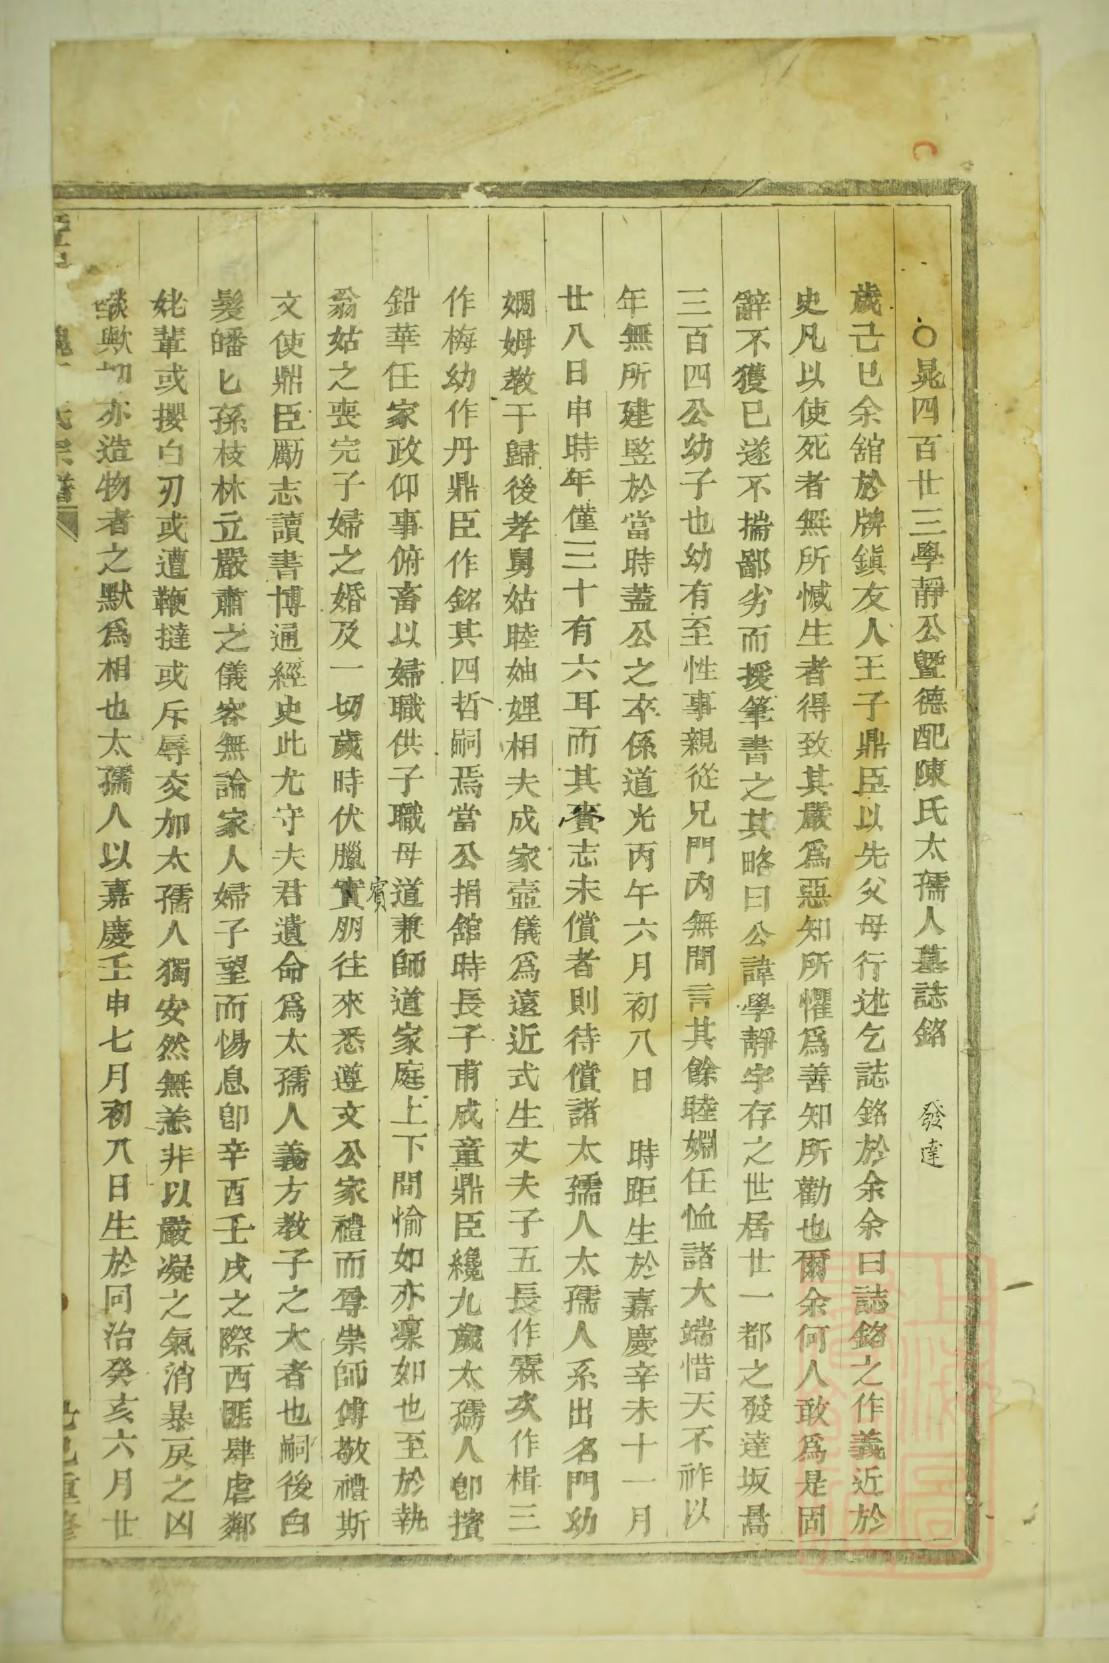 ○晁四百廿三學靜公曁德配陳氏太孺人墓誌銘 發達
歲己巳余舘於牌鎮友人王子鼎臣以先父母行述乞誌銘於余余曰誌銘之作義近於
史凡以使死者無所憾生者得致其嚴爲惡知所懼爲善知所勸也爾余何人敢爲是固
辭不獲已遂不揣鄙劣而援筆書之其略曰公諱學靜字存之世居廿一都之發達坂暠
三百四公幼子也幼有至性事親從兄門內無間言其餘睦婣任恤諸大端惜天不祚以
年無所建竪於當時蓋公之卒係道光丙午六月初八日 時距生於嘉慶辛未十一月
廿八日申時年僅三十有六耳而其賫志未償者則待償諸太孺人太孺人系出名門幼
嫻姆教于歸後孝舅姑睦妯娌相夫成家壼儀爲遠近式生丈夫子五長作霖次作楫三
作梅幼作丹鼎臣作銘其四哲嗣焉當公捐舘時長子甫成童鼎臣纔九歲太孺人卽擯
鉛華任家政仰事俯畜以婦職供子職母道兼師道家庭上下間愉如亦凜如也至於執
翁姑之喪完子婦之婚及一切歲時伏臘賓朋往來悉遵文公家禮而尊崇師傅敬禮斯
賓
文使鼎臣勵志讀書博通經史此尤守夫君遺命爲太孺人義方教子之大者也嗣後白
髮皤匕孫枝林立嚴肅之儀容無論家人婦子望而惕息卽辛酉壬戌之際西匪肆虐鄰
姥輩或攖白刃或遭鞭撻或斥辱交加太孺人獨安然無恙非以嚴凝之氣消暴戾之凶
燄歟抑亦造物者之默爲相也太孺人以嘉慶壬申七月初八日生於同治癸亥六月廿
氏宗譜 己巳重修
上海圖書館藏